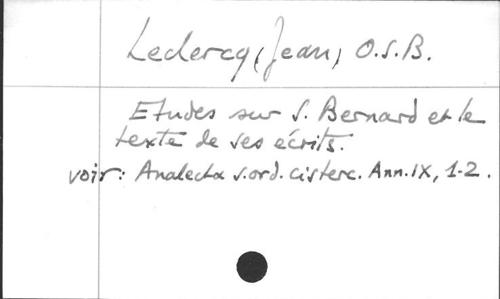 Leclercq, (Jean), O.S.B.
Etudes sur S. Bernard et le
texte de ses écrits.
voir: Analecta s.ord. cisterc. Ann.IX, 1-2.